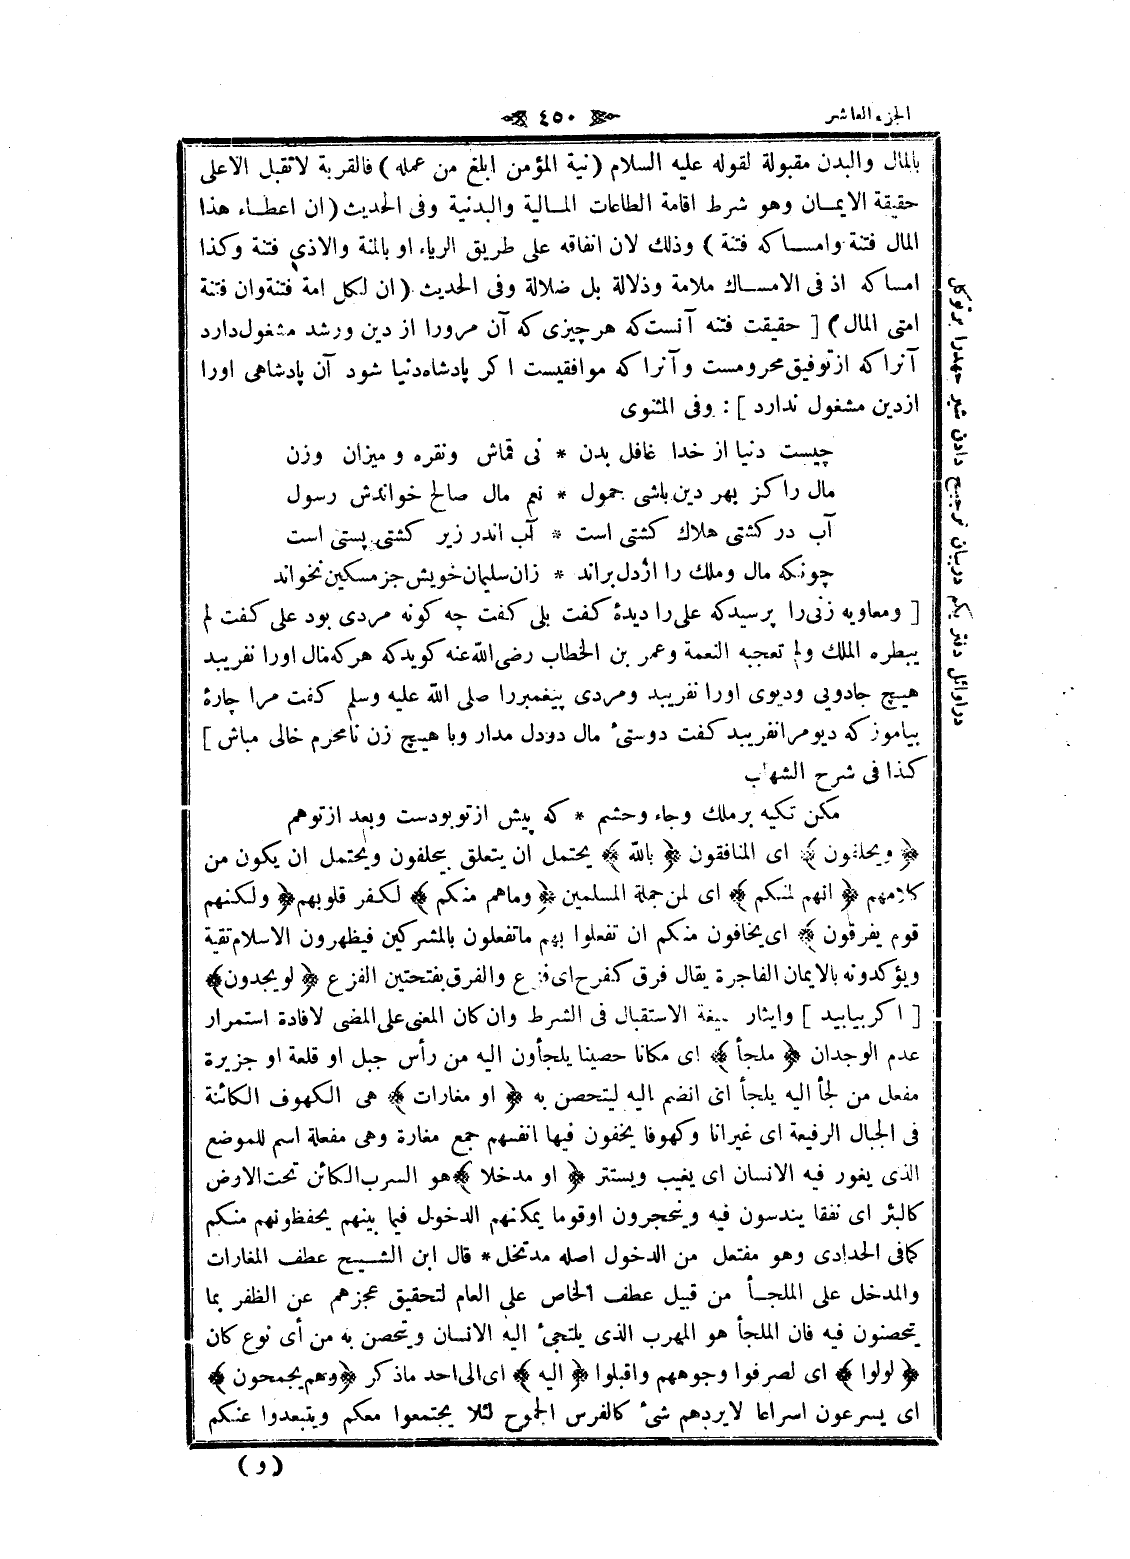 الجزء العاشر
٤٥٠
بالمال والبدن مقبولة لقوله عليه السلام (نية المؤمن ابلغ من عمله) فالقربة لا تقبل الا على
حقيقة الايمـان وهو شرط اقامة الطاعات المـالية والبدنية وفى الحديث (ان اعطـاء هذا
المال فتنة وامسـا كه فتنة) وذلك لان انفاقه على طريق الرياء او بالمنة والاذى فتنة وكذا
امسا كه اذ فى الامسـاك ملامة وذلالة بل ضلالة وفى الحديث (ان لكل امة فتنة وان فتنة
امتى المال) [ حقيقت فتنه آنست كه هر چيزى كه آن مرورا از دين ورشد مشغول دارد
آنرا كه از توفيق محرومست وآنرا كه موافقيست اكر پادشاه دنيا شود آن پادشاهى اورا
ازدين مشغول ندارد ] : وفى المثنوى
چيست دنيا از خدا غافل بدن * نى قماش ونقره و ميزان وزن
مال را كز بهر دين باشى حمول * نعم مال صالح خواندش رسول
آب در كشتى هلاك كشتى است * آب اندر زير كشتى پستى است
چونكه مال وملك را از دل براند * زان سليمان خويش جز مسكين نخواند
[ ومعاويه زنى را پرسيد كه على را ديدۀ كفت بلى كفت چه كونه مردى بود على كفت لم
يبطره الملك ولم تعجبه النعمة وعمر بن الخطاب رضى الله عنه كويد كه هر كه مال اورا نفريبد
هيچ جادويى وديوى اورا نفريبد ومردى پيغمبررا صلى الله عليه وسلم كفت مرا چارۀ
بياموز كه ديو مرا نفريبد كفت دوستئ مال دردل مدار وبا هيچ زن نامحرم خالى مباش ]
كذا فى شرح الشهاب
مكن تكيه بر ملك وجاه وحشم * كه پيش از تو بودست وبعد از تو هم
﴿ ويحلفون ﴾ اى المنافقون ﴿ بالله ﴾ يحتمل ان يتعلق بيحلفون ويحتمل ان يكون من
كلامهم ﴿ انهم لمنكم ﴾ اى لمن جملة المسلمين ﴿ وماهم منكم ﴾ لكفر قلوبهم ﴿ ولكنهم
قوم يفرقون ﴾ اى يخافون منكم ان تفعلوا بهم ما تفعلون بالمشركين فيظهرون الاسلام تقية
ويؤكدونه بالايمان الفاجرة يقال فرق كفرح اى فزع والفرق بفتحتين الفزع ﴿ لو يجدون ﴾
[ اكر بيابيد ] وايثار صيغة الاستقبال فى الشرط وان كان المعنى على المضى لافادة استمرار
عدم الوجدان ﴿ ملجأ ﴾ اى مكانا حصينا يلجأون اليه من رأس جبل او قلعة او جزيرة
مفعل من لجأ اليه يلجأ اى انضم اليه ليتحصن به ﴿ او مغارات ﴾ هى الكهوف الكائنة
فى الجبال الرفيعة اى غيرانا وكهوفا يخفون فيها انفسهم جمع مغارة وهى مفعلة اسم للموضع
الذى يغور فيه الانسان اى يغيب ويستتر ﴿ او مدخلا ﴾ هو السرب الكائن تحت الارض
كالبئر اى نفقا يندسون فيه وينحجرون اوقوما يمكنهم الدخول فيما بينهم يحفظونهم منكم
كما فى الحدادى وهو مفتعل من الدخول اصله مدتخل * قال ابن الشـيخ عطف المغارات
والمدخل على الملجـأ من قبيل عطف الخاص على العام لتحقيق عجزهم عن الظفر بما
يتحصنون فيه فان الملجأ هو المهرب الذى يلتجئ اليه الانسان ويتحصن به من أى نوع كان
﴿ لولوا ﴾ اى لصرفوا وجوههم واقبلوا ﴿ اليه ﴾ اى الى احد ماذكر ﴿ وهم يجمحون ﴾
اى يسرعون اسراعا لا يردهم شئ كالفرس الجموح لئلا يجتمعوا معكم ويتبعدوا عنكم
(و)
در اوائل دفتر يكم دربيان ترجيح دادن شير جهدرا بر توكل